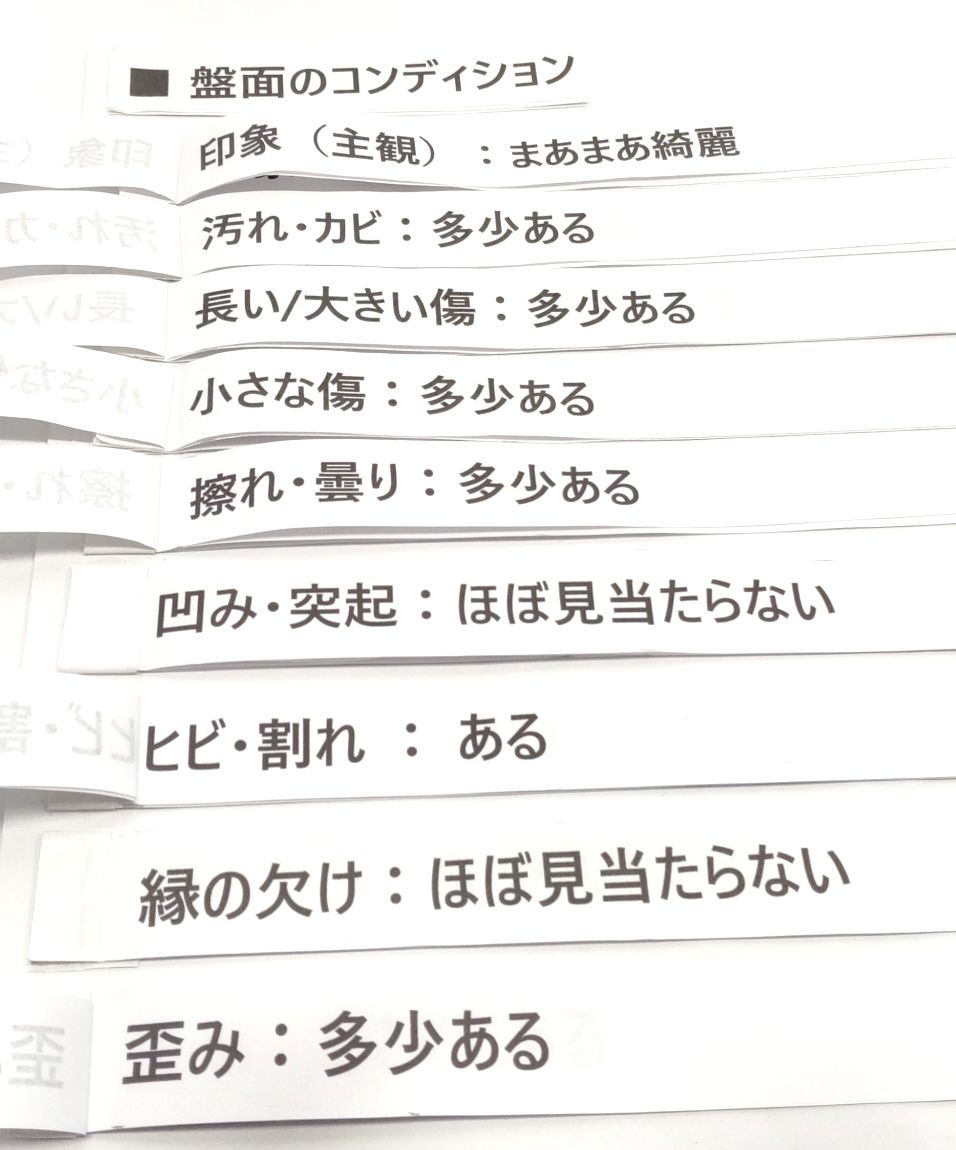 ■ 盤面のコンディション
印象（主観）：まあまあ綺麗
汚れ・カビ：多少ある
長い/大きい傷：多少ある
小さな傷：多少ある
擦れ・曇り：多少ある
凹み・突起：ほぼ見当たらない
ヒビ・割れ ： ある
縁の欠け：ほぼ見当たらない
歪み：多少ある